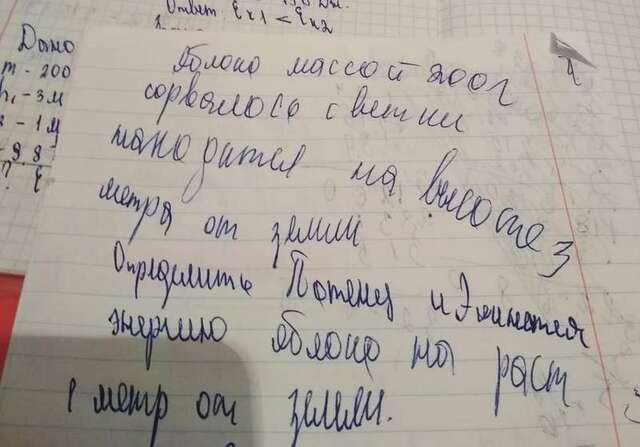 Ответ: Ek1 < Ek2
Дано
m - 200
h1 - 3 м
2 - 1 м
9.8
? E
Яблоко массой 200г
сорвалось с ветки
находится на высоте 3
метра от земли
Определить Потенц и
энергию яблока на раст
1 метр от земли.